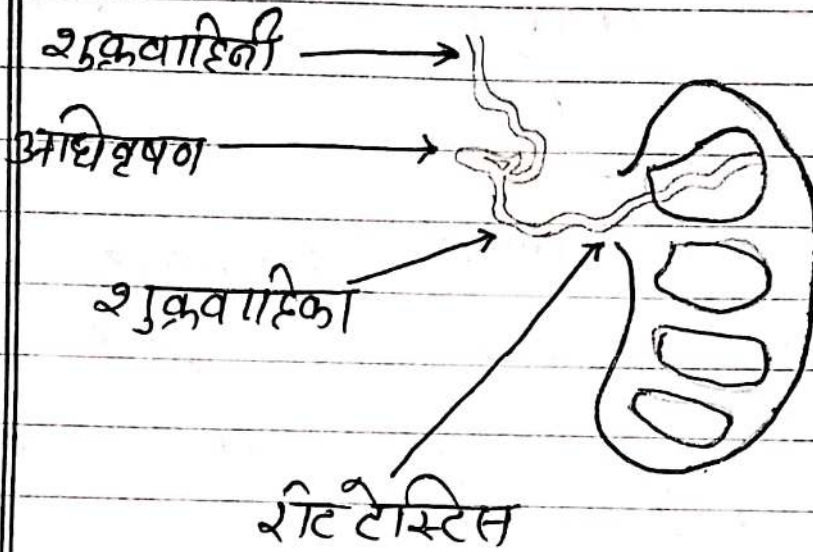 शुक्रवाहिनी
अधिवृषण
शुक्रवाहिका
रीट टेस्टिस